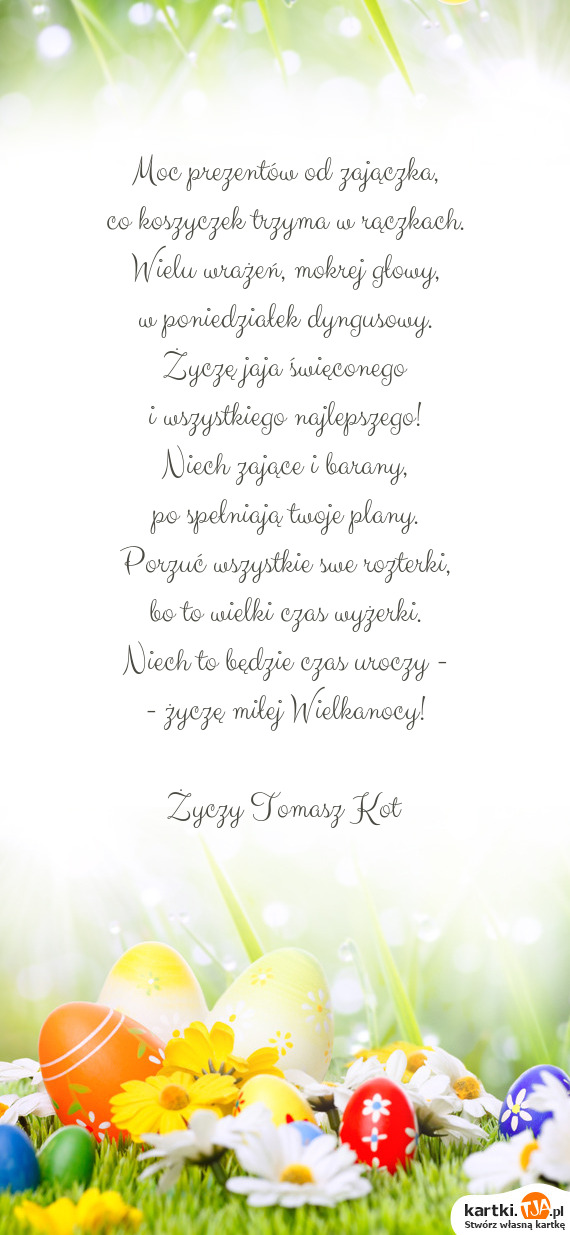 Moc prezentów od zajączka,
co koszyczek trzyma w rączkach.
Wielu wrażeń, mokrej głowy,
w poniedziałek dyngusowy.
Życzę jaja święconego
i wszystkiego najlepszego!
Niech zające i barany,
po spełniają twoje plany.
Porzuć wszystkie swe rozterki,
bo to wielki czas wyżerki.
Niech to będzie czas uroczy -
- życzę miłej Wielkanocy!
Życzy Tomasz Kot
kartki.TJA.pl
Stwórz własną kartkę